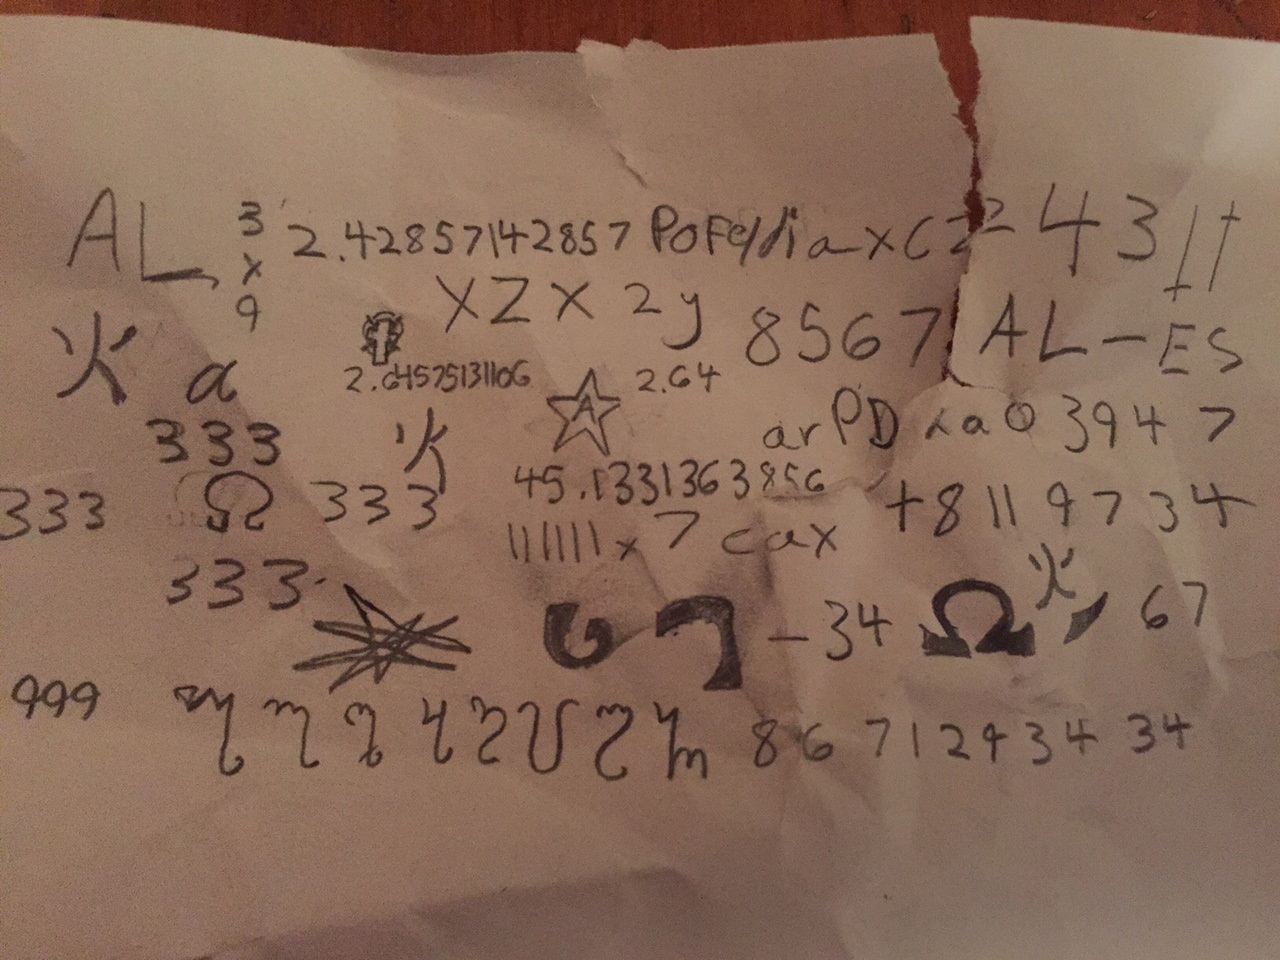 AL, 3 x 9 2.42857142857 43
XZX 2y 8567 AL-ES
火 a 2.64575131106 A 2.64
333 火 arPD 3947
333 Ω 333 45.1331363856 +8119734
1111111 x 7 cax
333 -34 Ω 火 67
999 86 712434 34